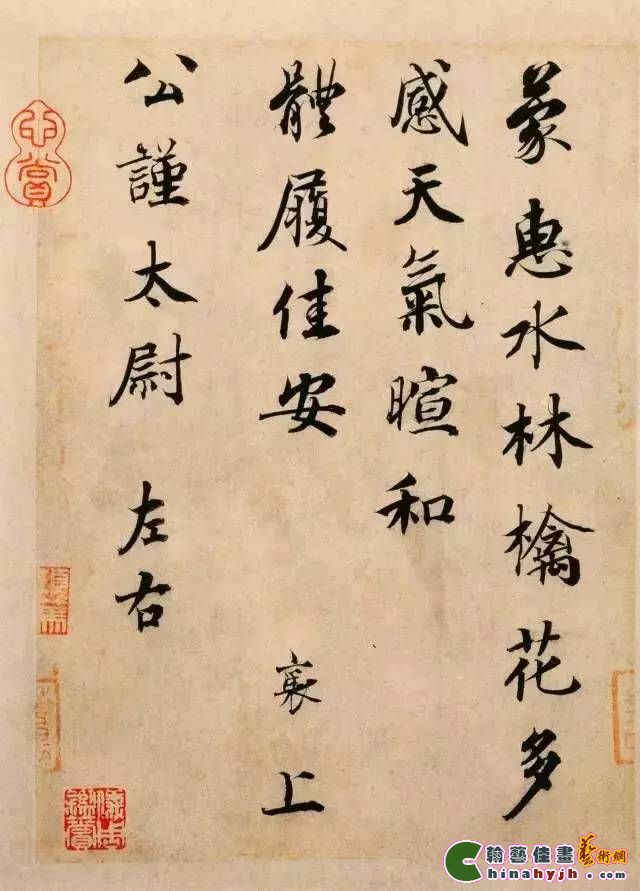 蒙惠水林檎花多
感天氣暄和
體履佳安 襄上
公謹太尉 左右
翰藝佳畫藝術網
Chinahyjh.com